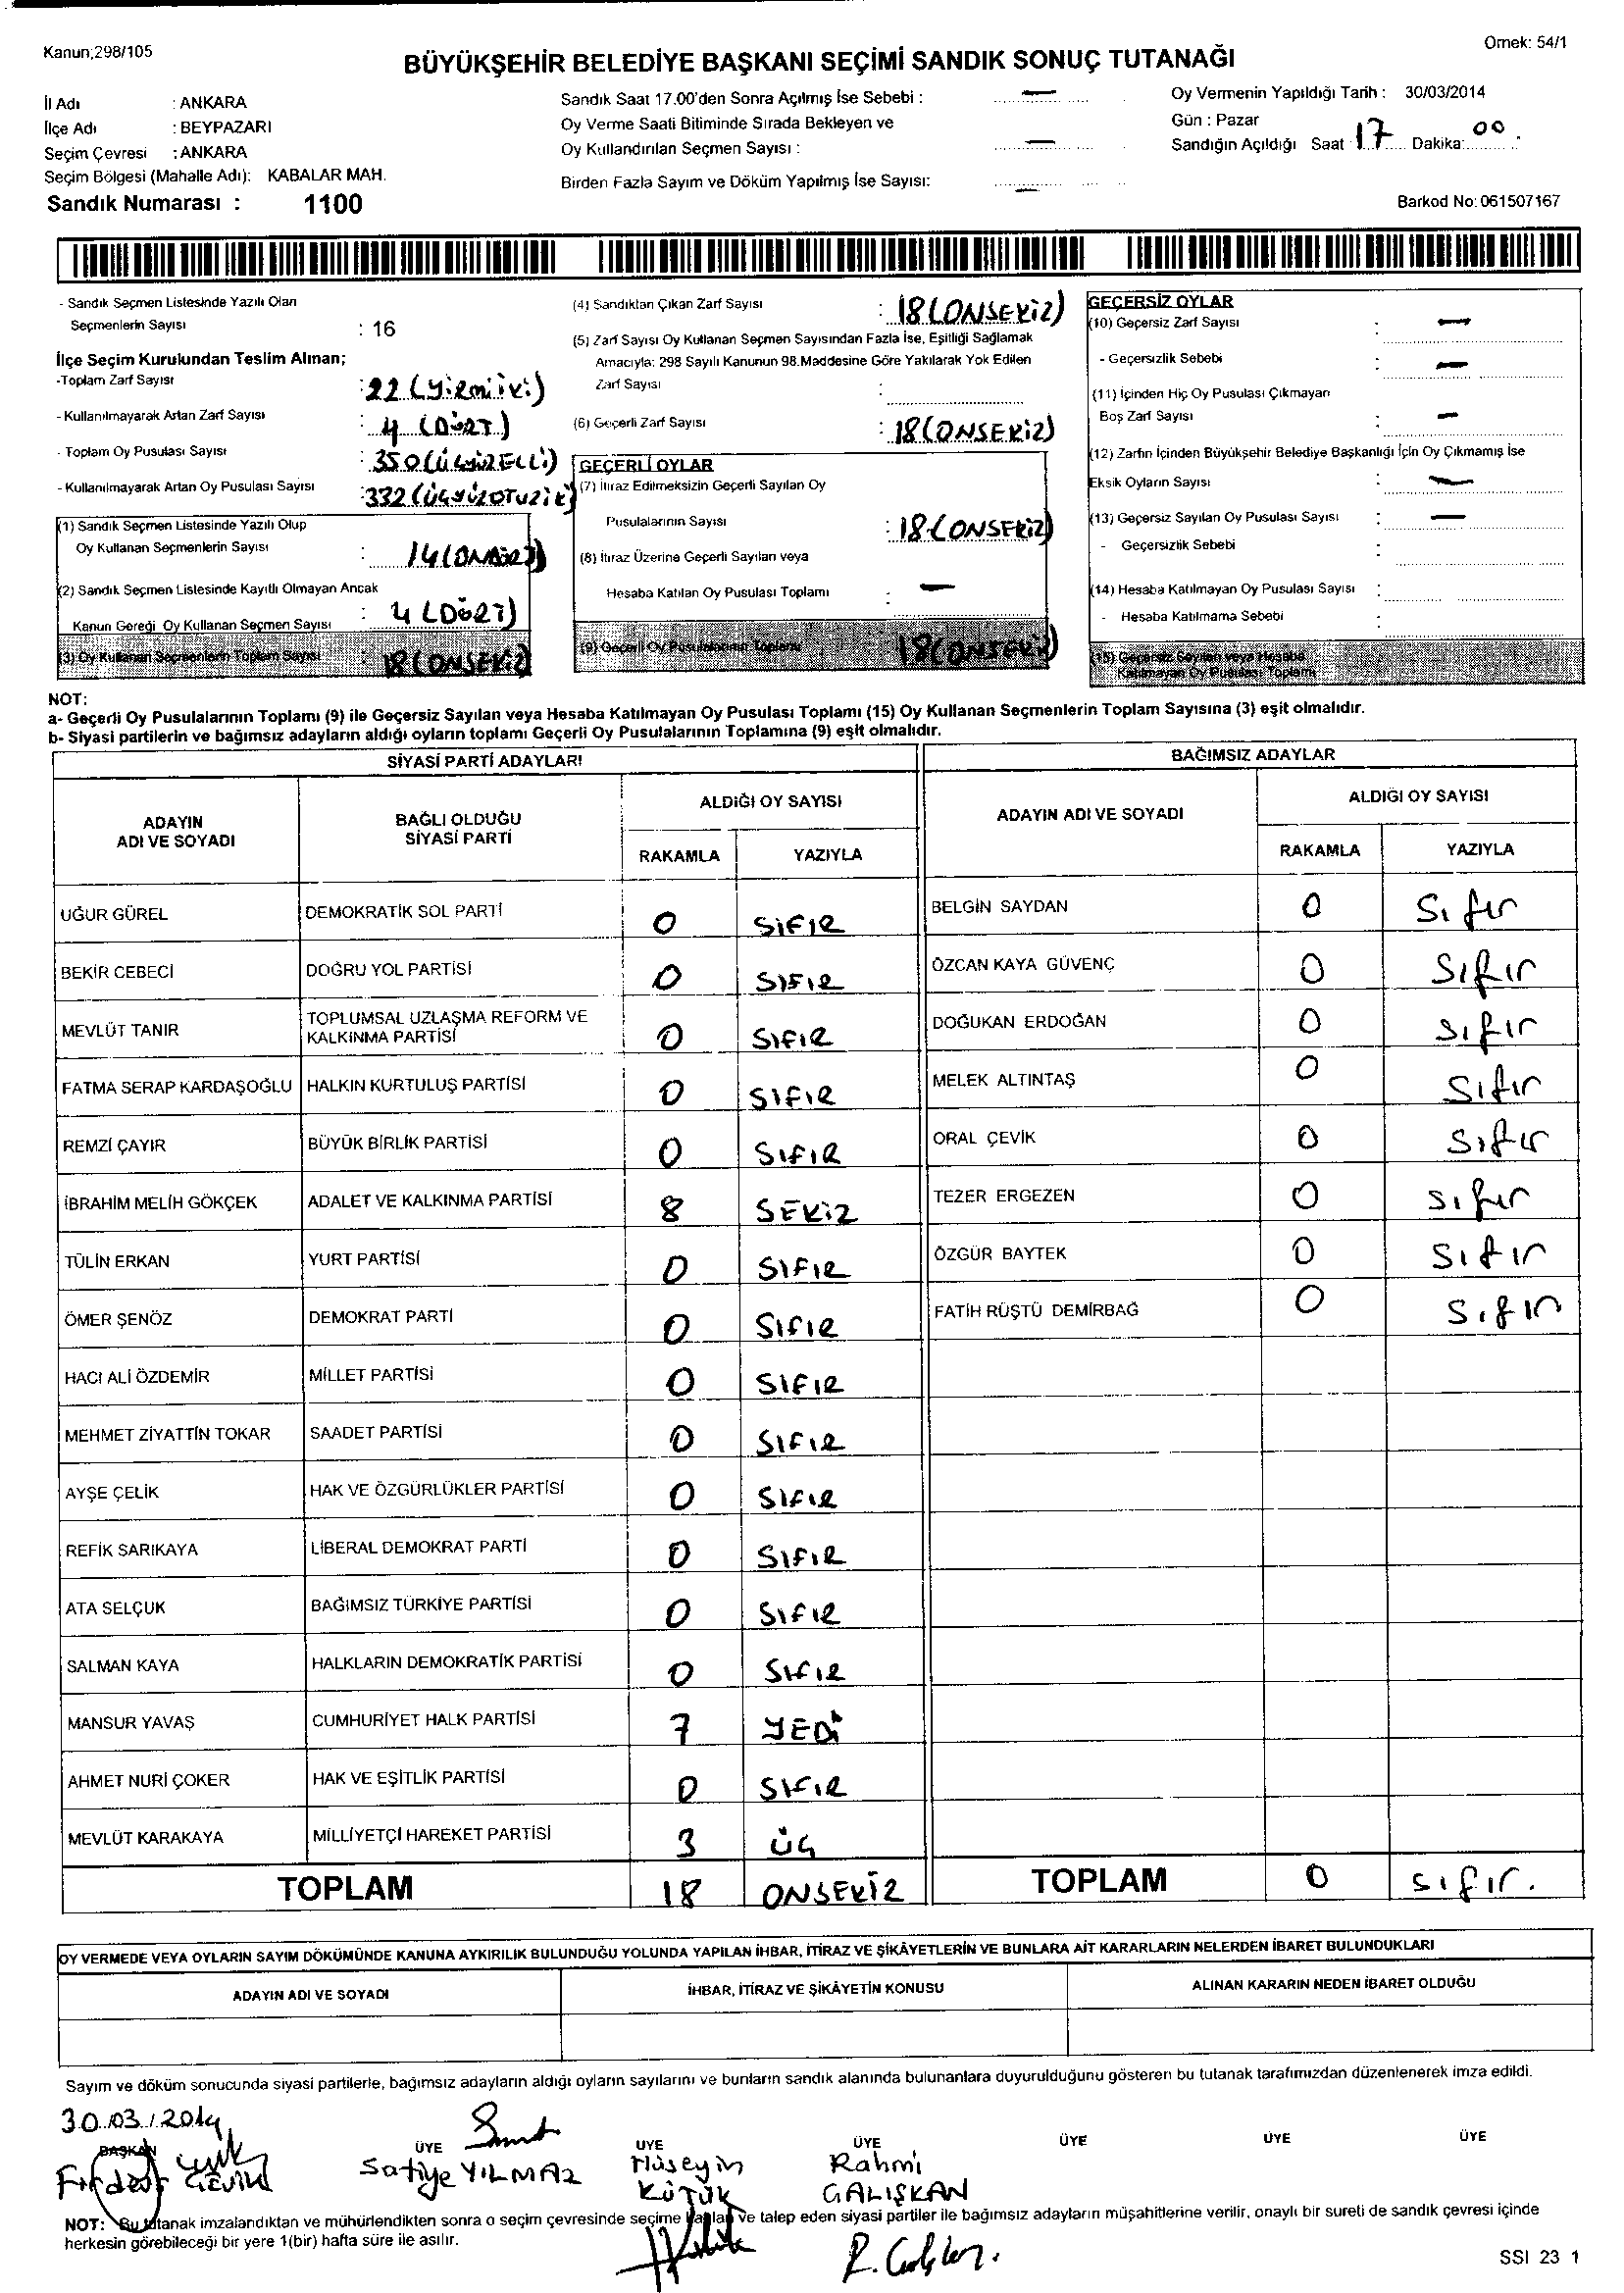 Kanun;298/105
Örnek: 54/1
BÜYÜKŞEHİR BELEDİYE BAŞKANI SEÇİMİ SANDIK SONUÇ TUTANAĞI
İl Adı : ANKARA
İlçe Adı : BEYPAZARI
Seçim Çevresi : ANKARA
Seçim Bölgesi (Mahalle Adı): KABALAR MAH.
Sandık Numarası : 1100
Sandık Saat 17.00'den Sonra Açılmış İse Sebebi : —
Oy Verme Saati Bitiminde Sırada Bekleyen ve
Oy Kullandırılan Seçmen Sayısı : —
Birden Fazla Sayım ve Döküm Yapılmış İse Sayısı: —
Oy Vermenin Yapıldığı Tarih : 30/03/2014
Gün : Pazar
Sandığın Açıldığı Saat 17 Dakika: 00
Barkod No: 061507167
- Sandık Seçmen Listesinde Yazılı Olan
Seçmenlerin Sayısı : 16
İlçe Seçim Kurulundan Teslim Alınan;
-Toplam Zarf Sayısı : 22 (Yirmiiki)
- Kullanılmayarak Artan Zarf Sayısı : 4 (DÖRT)
- Toplam Oy Pusulası Sayısı : 350 (ÜÇYÜZELLİ)
- Kullanılmayarak Artan Oy Pusulası Sayısı : 332 (ÜÇYÜZOTUZİK
(1) Sandık Seçmen Listesinde Yazılı Olup
Oy Kullanan Seçmenlerin Sayısı : 14 (ONDÖRT)
(2) Sandık Seçmen Listesinde Kayıtlı Olmayan Ancak
Kanun Gereği Oy Kullanan Seçmen Sayısı : 4 (DÖRT)
(3) Oy Kullanan Seçmenlerin Toplam Sayısı : 18 (ONSEKİZ)
(4) Sandıktan Çıkan Zarf Sayısı : 18 (ONSEKİZ)
(5) Zarf Sayısı Oy Kullanan Seçmen Sayısından Fazla İse, Eşitliği Sağlamak
Amacıyla: 298 Sayılı Kanunun 98.Maddesine Göre Yakılarak Yok Edilen
Zarf Sayısı :
(6) Geçerli Zarf Sayısı : 18 (ONSEKİZ)
GEÇERLİ OYLAR
(7) İtiraz Edilmeksizin Geçerli Sayılan Oy
Pusulalarının Sayısı : 18 (ONSEKİZ)
(8) İtiraz Üzerine Geçerli Sayılan veya
Hesaba Katılan Oy Pusulası Toplamı : —
(9) Geçerli Oy Pusulalarının Toplamı 18 (ONSEKİZ)
GEÇERSİZ OYLAR
(10) Geçersiz Zarf Sayısı : —
- Geçersizlik Sebebi : —
(11) İçinden Hiç Oy Pusulası Çıkmayan
Boş Zarf Sayısı : —
(12) Zarfın İçinden Büyükşehir Belediye Başkanlığı İçin Oy Çıkmamış İse
Eksik Oyların Sayısı : —
(13) Geçersiz Sayılan Oy Pusulası Sayısı : —
- Geçersizlik Sebebi :
(14) Hesaba Katılmayan Oy Pusulası Sayısı :
- Hesaba Katılmama Sebebi :
(15) Geçersiz Sayılan veya Hesaba
Katılmayan Oy Pusulası Toplamı
NOT:
a- Geçerli Oy Pusulalarının Toplamı (9) ile Geçersiz Sayılan veya Hesaba Katılmayan Oy Pusulası Toplamı (15) Oy Kullanan Seçmenlerin Toplam Sayısına (3) eşit olmalıdır.
b- Siyasi partilerin ve bağımsız adayların aldığı oyların toplamı Geçerli Oy Pusulalarının Toplamına (9) eşit olmalıdır.
SİYASİ PARTİ ADAYLARI
ADAYIN ADI VE SOYADI BAĞLI OLDUĞU SİYASİ PARTİ ALDIĞI OY SAYISI
RAKAMLA YAZIYLA
UĞUR GÜREL DEMOKRATİK SOL PARTİ 0 SIFIR
BEKİR CEBECİ DOĞRU YOL PARTİSİ 0 SIFIR
MEVLÜT TANIR TOPLUMSAL UZLAŞMA REFORM VE KALKINMA PARTİSİ 0 SIFIR
FATMA SERAP KARDAŞOĞLU HALKIN KURTULUŞ PARTİSİ 0 SIFIR
REMZİ ÇAYIR BÜYÜK BİRLİK PARTİSİ 0 SIFIR
İBRAHİM MELİH GÖKÇEK ADALET VE KALKINMA PARTİSİ 8 SEKİZ
TÜLİN ERKAN YURT PARTİSİ 0 SIFIR
ÖMER ŞENÖZ DEMOKRAT PARTİ 0 SIFIR
HACI ALİ ÖZDEMİR MİLLET PARTİSİ 0 SIFIR
MEHMET ZİYATTİN TOKAR SAADET PARTİSİ 0 SIFIR
AYŞE ÇELİK HAK VE ÖZGÜRLÜKLER PARTİSİ 0 SIFIR
REFİK SARIKAYA LİBERAL DEMOKRAT PARTİ 0 SIFIR
ATA SELÇUK BAĞIMSIZ TÜRKİYE PARTİSİ 0 SIFIR
SALMAN KAYA HALKLARIN DEMOKRATİK PARTİSİ 0 SIFIR
MANSUR YAVAŞ CUMHURİYET HALK PARTİSİ 7 YEDİ
AHMET NURİ ÇOKER HAK VE EŞİTLİK PARTİSİ 0 SIFIR
MEVLÜT KARAKAYA MİLLİYETÇİ HAREKET PARTİSİ 3 ÜÇ
TOPLAM 18 ONSEKİZ
BAĞIMSIZ ADAYLAR
ADAYIN ADI VE SOYADI ALDIĞI OY SAYISI
RAKAMLA YAZIYLA
BELGİN SAYDAN 0 Sıfır
ÖZCAN KAYA GÜVENÇ 0 Sıfır
DOĞUKAN ERDOĞAN 0 Sıfır
MELEK ALTINTAŞ 0 Sıfır
ORAL ÇEVİK 0 Sıfır
TEZER ERGEZEN 0 Sıfır
ÖZGÜR BAYTEK 0 Sıfır
FATİH RÜŞTÜ DEMİRBAĞ 0 Sıfır
TOPLAM 0 Sıfır.
OY VERMEDE VEYA OYLARIN SAYIM DÖKÜMÜNDE KANUNA AYKIRILIK BULUNDUĞU YOLUNDA YAPILAN İHBAR, İTİRAZ VE ŞİKÂYETLERİN VE BUNLARA AİT KARARLARIN NELERDEN İBARET BULUNDUKLARI
ADAYIN ADI VE SOYADI İHBAR, İTİRAZ VE ŞİKÂYETİN KONUSU ALINAN KARARIN NEDEN İBARET OLDUĞU
Sayım ve döküm sonucunda siyasi partilerle, bağımsız adayların aldığı oyların sayılarını ve bunların sandık alanında bulunanlara duyurulduğunu gösteren bu tutanak tarafımızdan düzenlenerek imza edildi.
30.03.2014
BAŞKAN ÜYE ÜYE ÜYE ÜYE ÜYE ÜYE
Firdevs ÇEVİK Satiye YILMAZ Hüseyin KÜTÜK Rahmi ÇALIŞKAN
NOT: Bu tutanak imzalandıktan ve mühürlendikten sonra o seçim çevresinde seçime katılan ve talep eden siyasi partiler ile bağımsız adayların müşahitlerine verilir, onaylı bir sureti de sandık çevresi içinde
herkesin görebileceği bir yere 1(bir) hafta süre ile asılır.
SSI 23 1